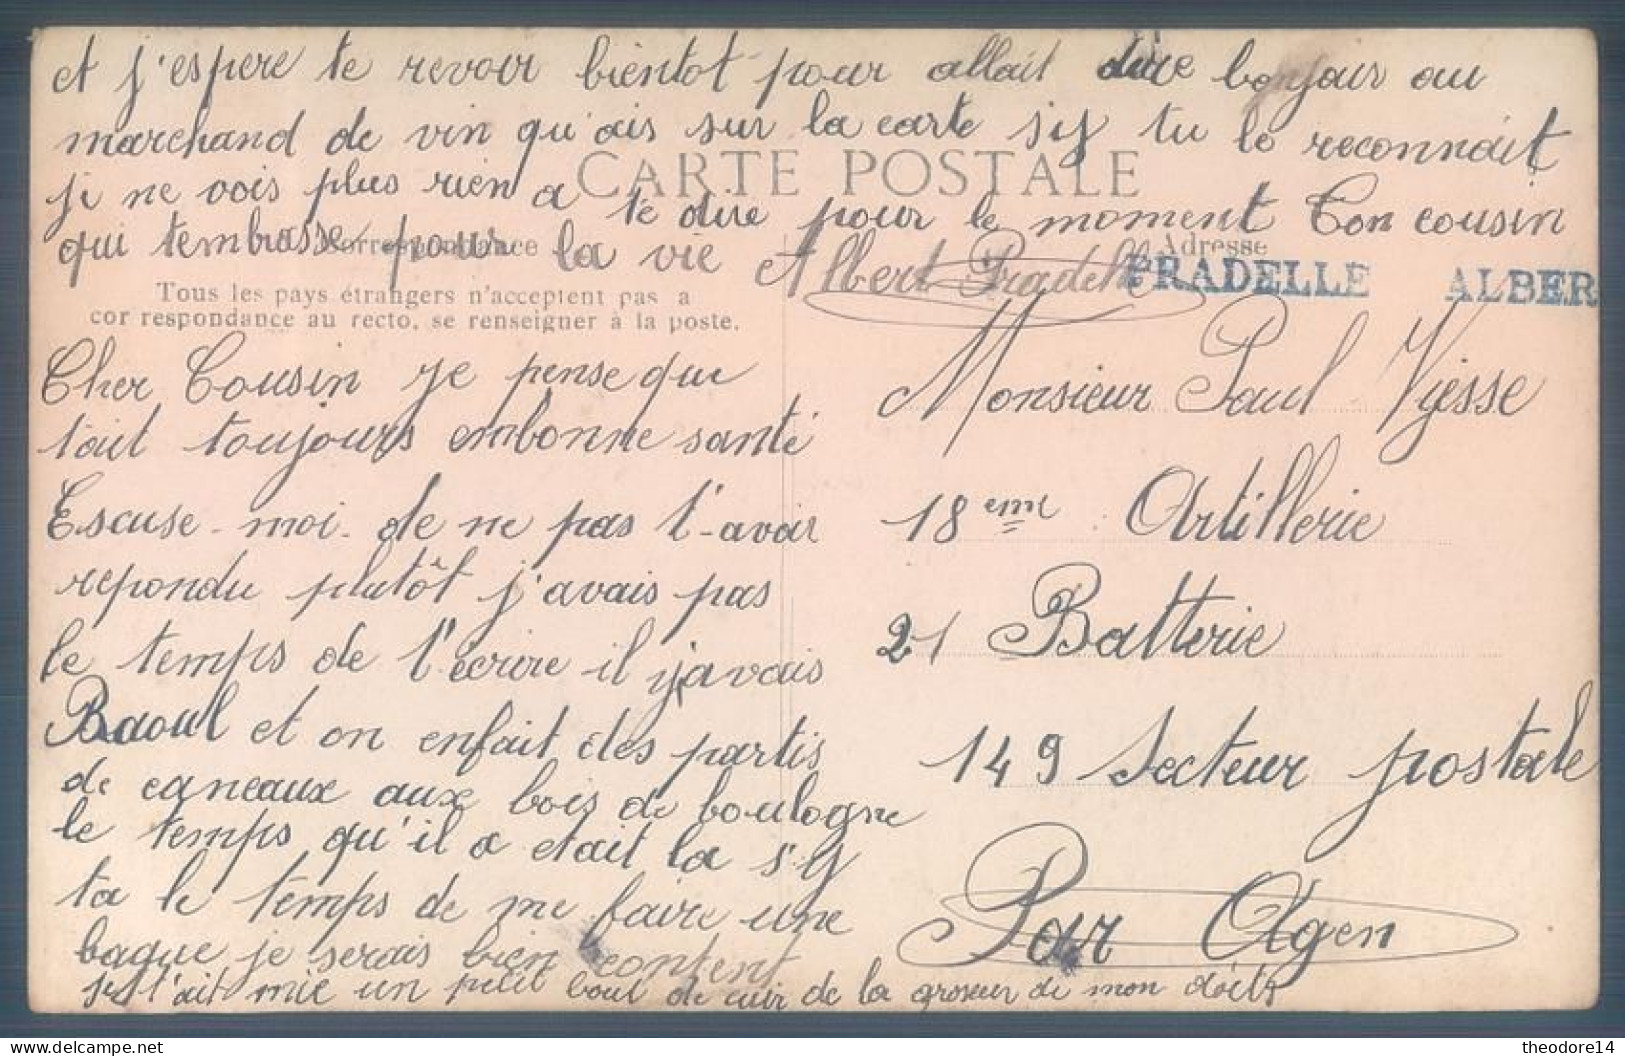 et j'espere te revoir bientot pour allait dire bonjour au
marchand de vin qu'ais sur la carte s'iy tu le reconnait
je ne vois plus rien a te dire pour le moment Ton cousin
qui tembrasse pour la vie Albert Pradelle
CARTE POSTALE
Correspondance
Tous les pays étrangers n'acceptent pas a
correspondance au recto, se renseigner à la poste.
Cher Cousin je pense que
tait toujours enbonne santé
Escuse-moi de ne pas t'-avoir
repondu plutôt j'avais pas
le temps de t'écrire il y'avais
Raoul et on enfait des partis
de caneaux aux bois de boulogne
le temps qu'il a etait la s'iy
ta le temps de me faire une
bague je serais bien content
je t'ait mie un petit bout de cuir de la groseur de mon doits
Adresse
PRADELLE ALBER
Monsieur Paul Vjesse
18eme Artillerie
21 Batterie
149 Secteur postale
Par Agen
delcampe.net
theodore14